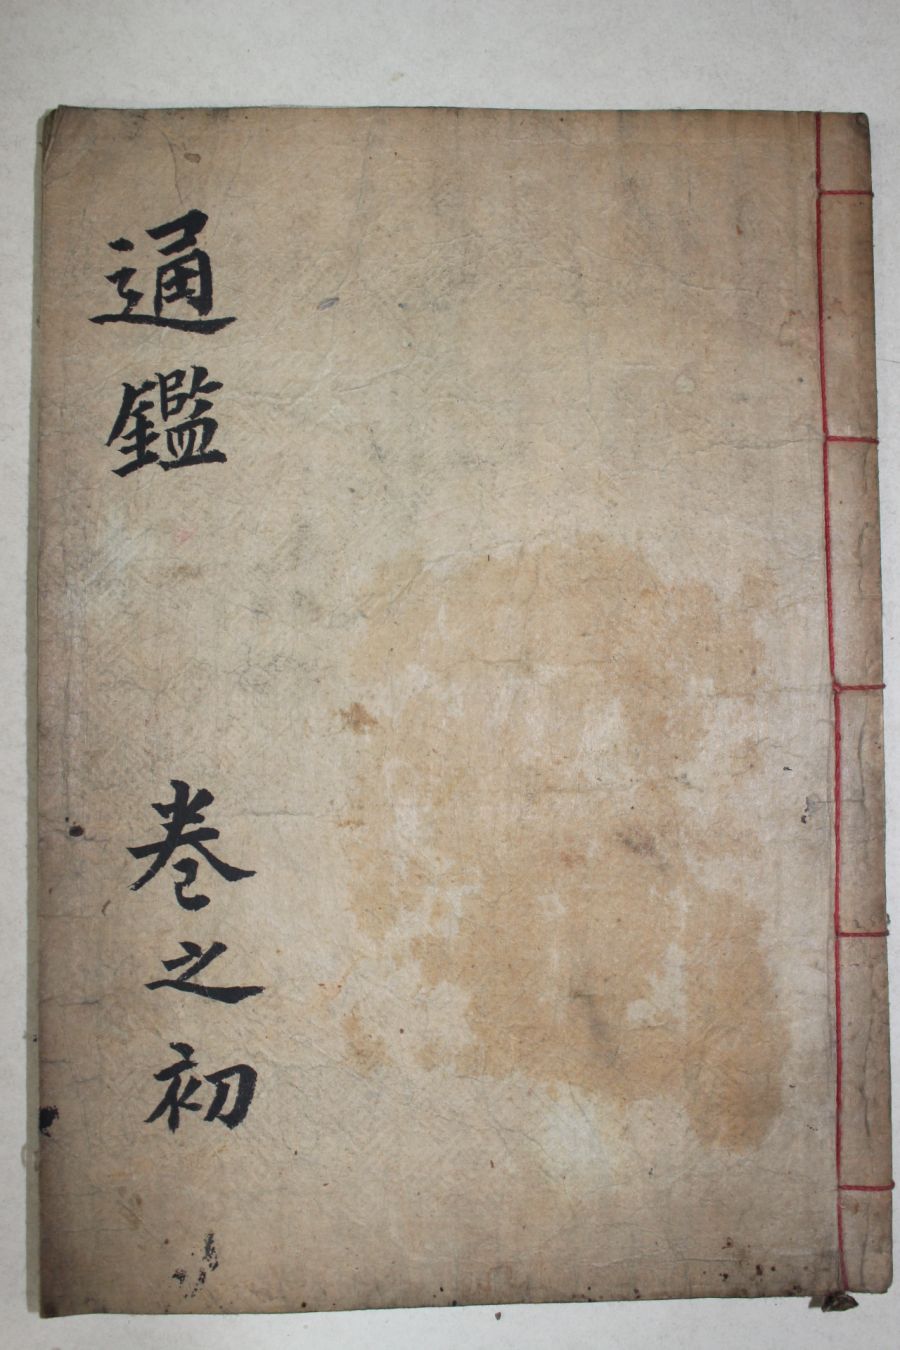 通鑑 卷之初